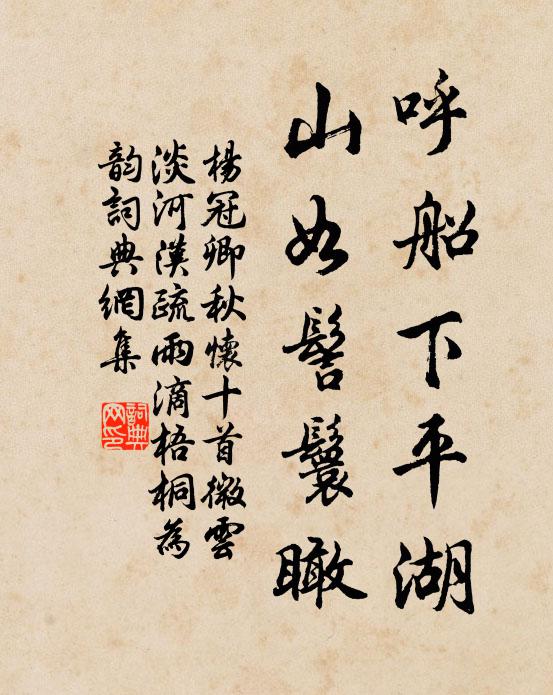 呼船下平湖
山如髻鬟瞰
楊冠卿秋懷十首微雲
淡河漢疏雨滴梧桐為
韵詞典網集
詞典
网印